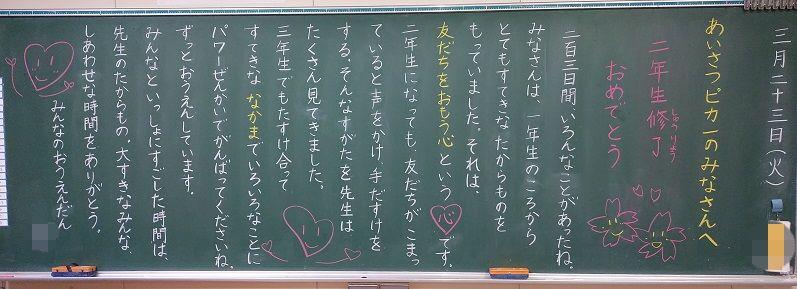 三月二十三日(火)
あいさつピカ一のみなさんへ
二年生修了
しゅうりょう
おめでとう
二百三日間、いろんなことがあったね。
みなさんは、一年生のころから
とてもすてきなたからものを
もっていました。それは、
友だちをおもう心という心です。
二年生になっても、友だちがこまっ
ていると声をかけ、手だすけを
する、そんなすがたを先生は
たくさん見てきました。
三年生でもたすけ合って
すてきななかまでいろいろなことに
パワーぜんかいでがんばってくださいね。
ずっとおうえんしています。
みんなといっしょにすごした時間は、
先生のたからもの。大すきなみんな、
しあわせな時間をありがとう。
みんなのおうえんだん